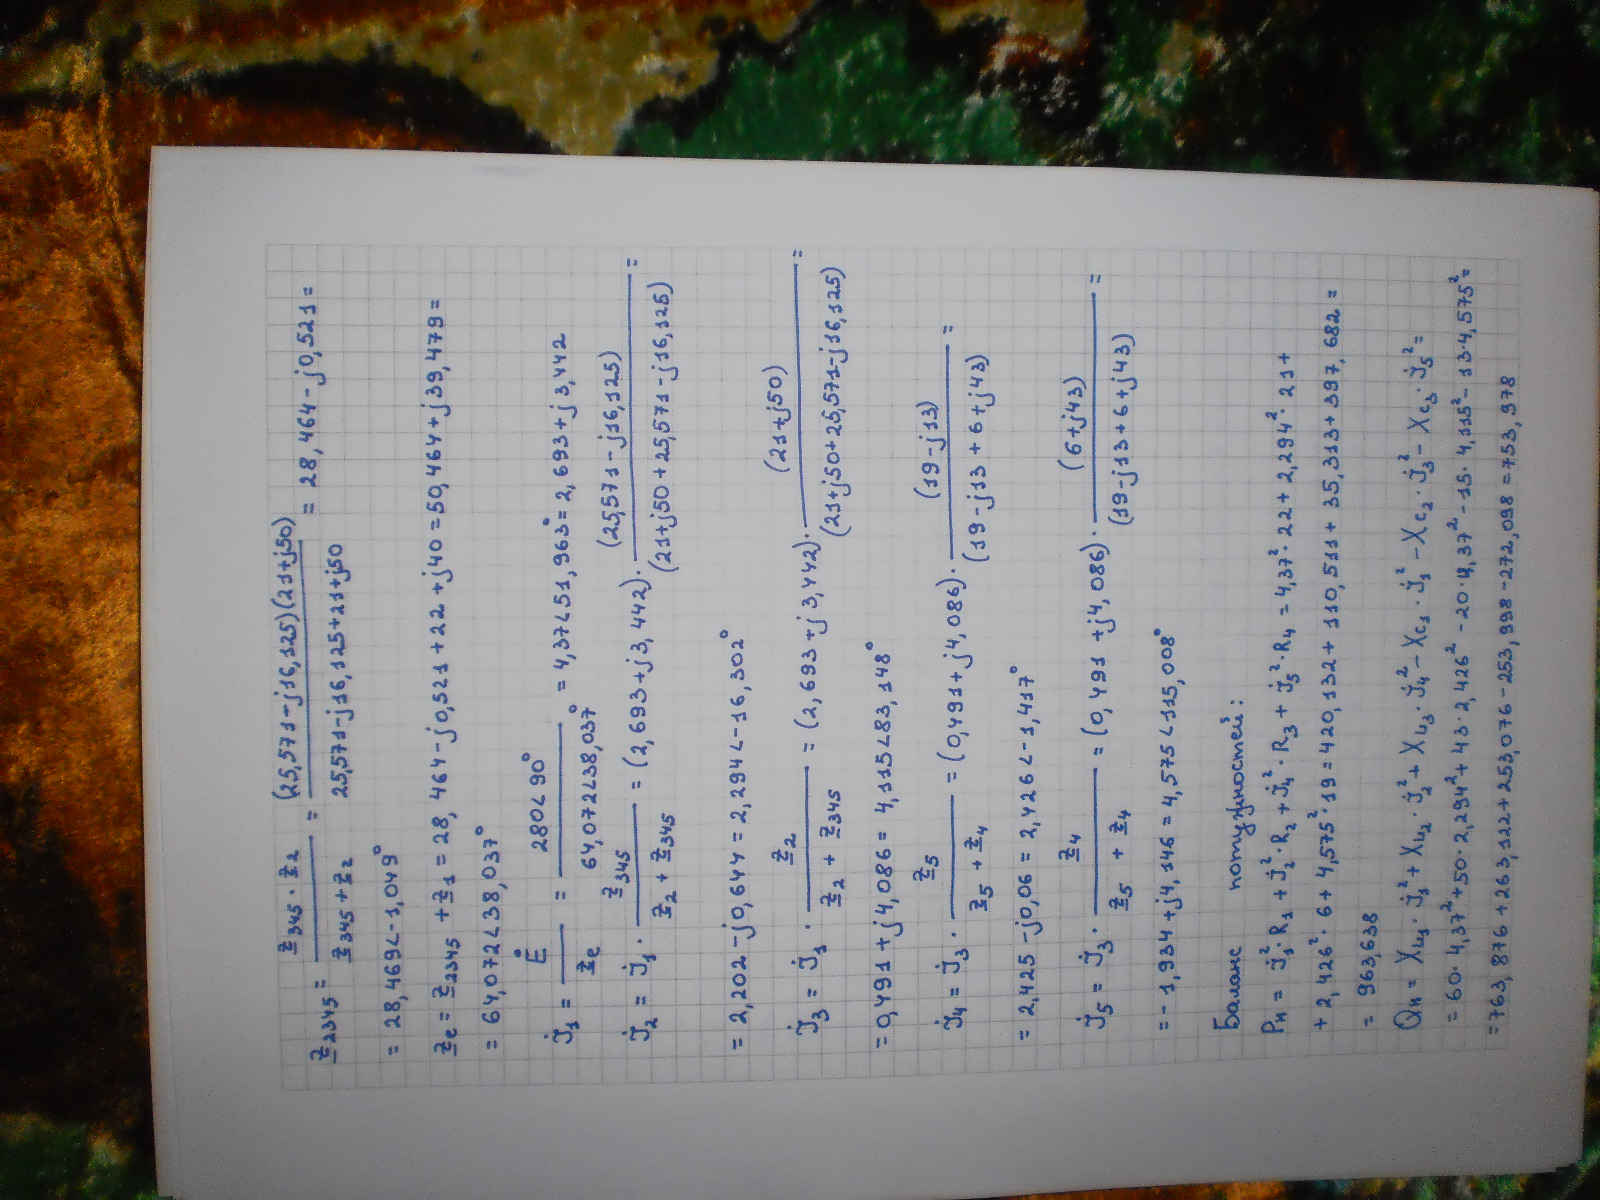 Z₂₃₄₅ = (Z₃₄₅ · Z₂) / (Z₃₄₅ + Z₂) = (25,571-j16,125)(21+j50) / (25,571-j16,125+21+j50) = 28,464-j0,521 =
= 28,469∠-1,049°
Zₑ = Z₂₃₄₅ + Z₁ = 28,464-j0,521+22+j40=50,464+j39,479=
= 64,072∠38,037°
İ₁ = Ė / Zₑ = 280∠90° / 64,072∠38,037° = 4,37∠51,963°=2,693+j3,442
İ₂ = İ₁ · Z₃₄₅ / (Z₂ + Z₃₄₅) = (2,693+j3,442)· (25,571-j16,125) / (21+j50+25,571-j16,125) =
= 2,202-j0,644 = 2,294∠-16,302°
İ₃ = İ₁ · Z₂ / (Z₂ + Z₃₄₅) = (2,693+j3,442)· (21+j50) / (21+j50+25,571-j16,125) =
= 0,491+j4,086= 4,115∠83,148°
İ₄ = İ₃ · Z₅ / (Z₅ + Z₄) = (0,491+j4,086)· (19-j13) / (19-j13+6+j43) =
= 2,425-j0,06= 2,426∠-1,417°
İ₅ = İ₃ · Z₄ / (Z₅ + Z₄) = (0,491+j4,086)· (6+j43) / (19-j13+6+j43) =
= -1,934+j4,146=4,575∠115,008°
Баланс потужностей:
Pн = İ₁²·R₁+İ₂²·R₂+İ₄²·R₃+İ₅²·R₄=4,37²·22+2,294²·21+
+2,426²·6+4,575²·19=420,132+110,511+35,313+397,682=
= 963,638
Qн = Xʟ₁·İ₁²+Xʟ₂·İ₂²+Xʟ₃·İ₄²-Xc₁·İ₁²-Xc₂·İ₃²-Xc₃·İ₅²=
= 60·4,37²+50·2,294²+43·2,426²-20·4,37²-15·4,115²-13·4,575²=
=763,876+263,122+253,076-253,998-272,098=753,978